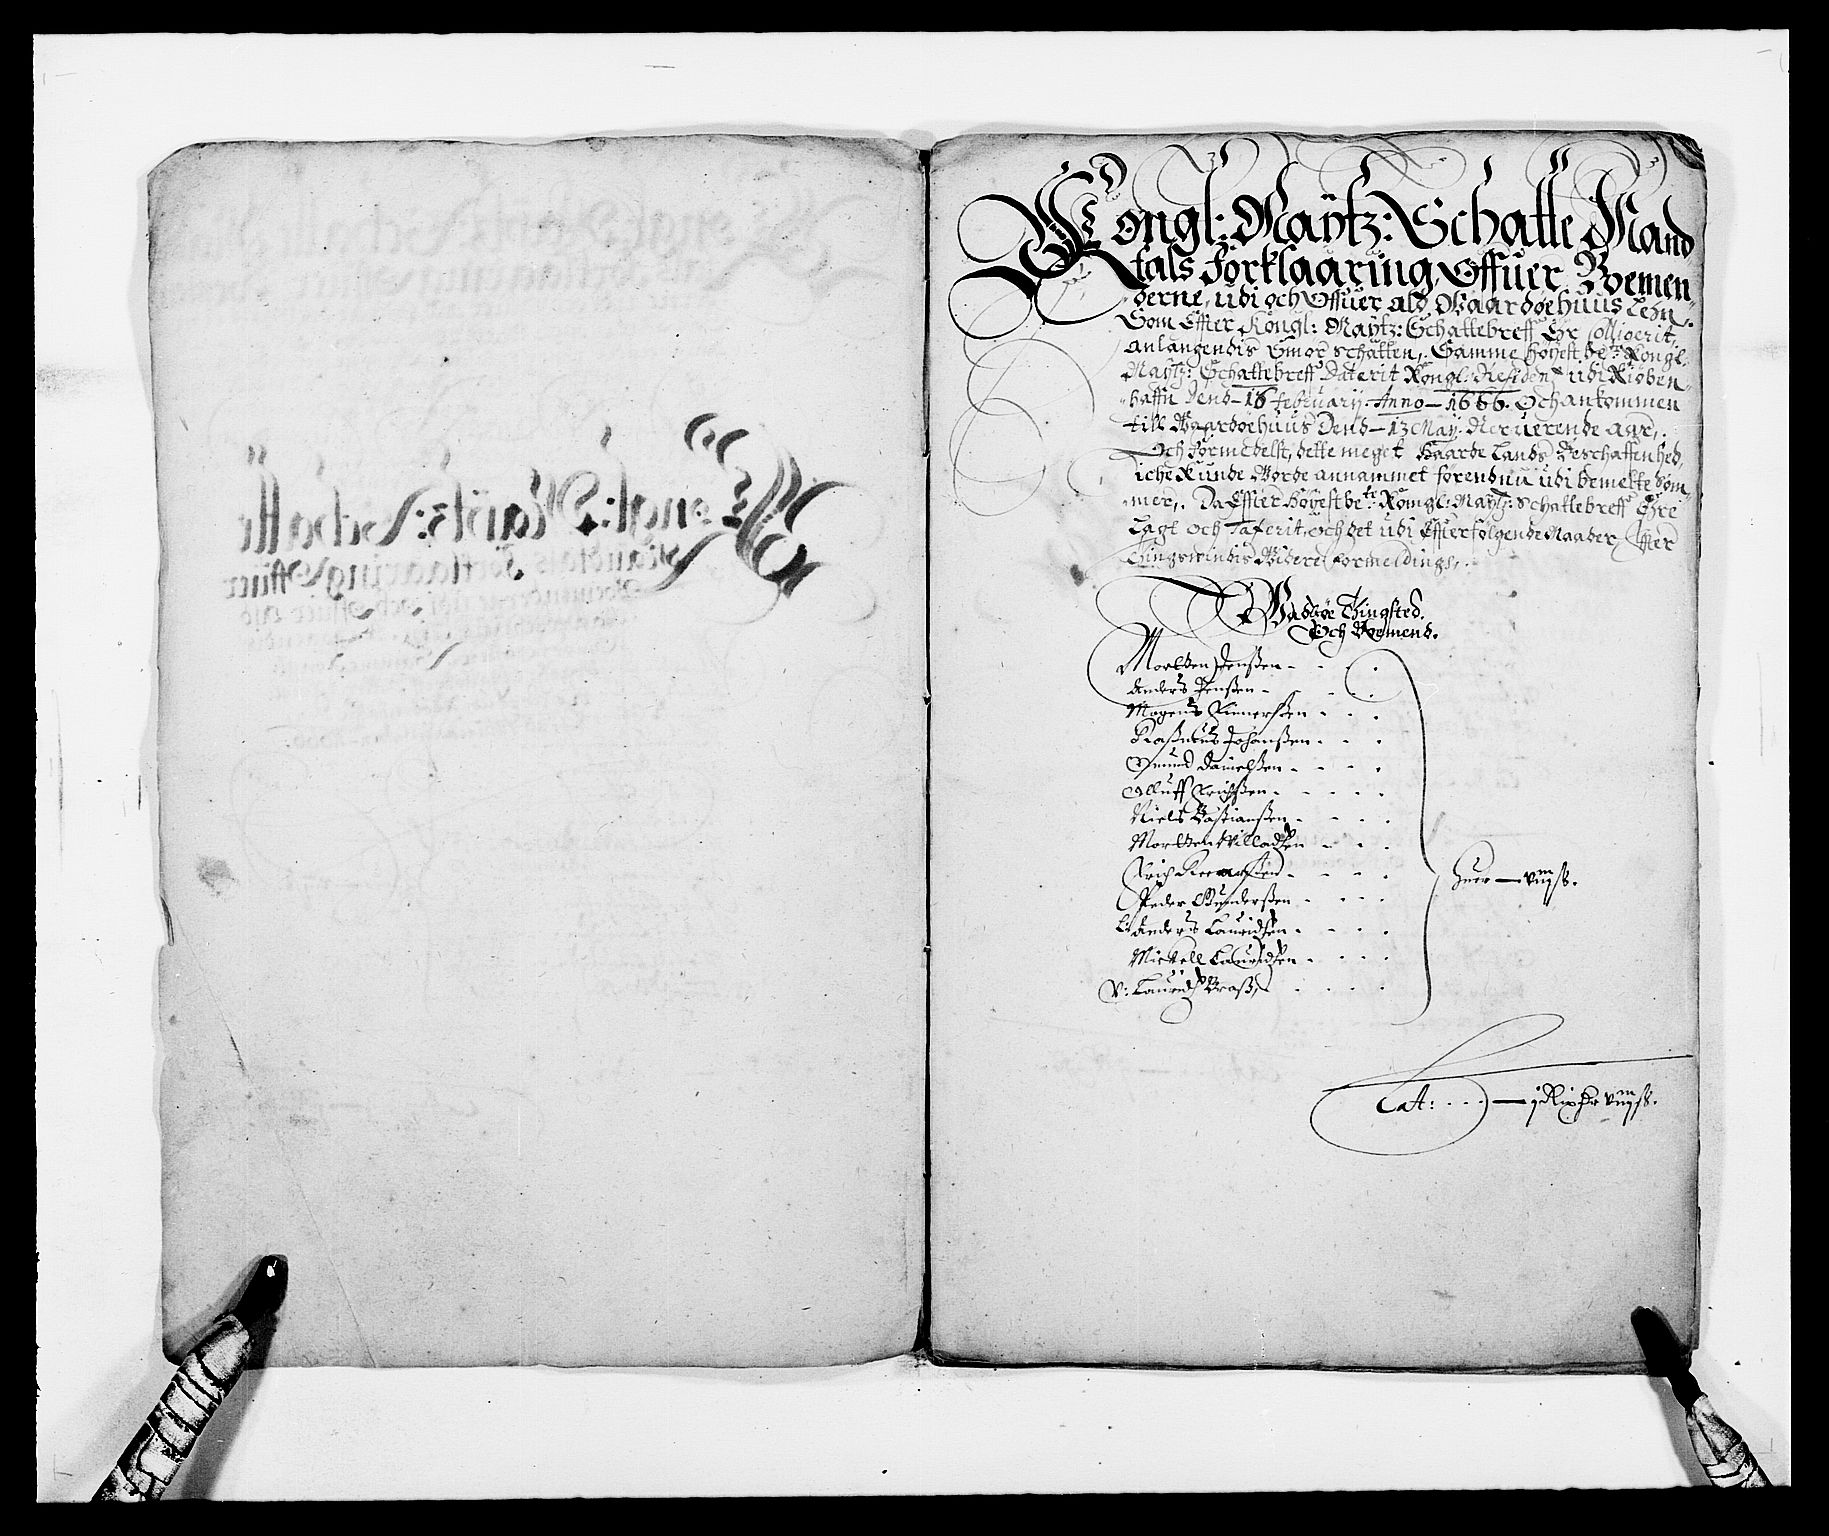 Kongl: Maÿtz: Schatte Mand
tals forklaaring, Offuer Boemen-
derne, udi och Offuer ald Waardøehuus Lehn,
Som Effter Kongl: Maÿtz: Schattebreff Ehr
anlangendis Smør schatten,. Samme høyest be.te Kongl:
Maÿtz: Schattebreff Daterit Kongl: Residentz udi Kiøben-
haffn Dend - 16 February. Anno - 1666. Och ankommen
till Wardøehuus Dend - 13 May. Neruerende aar,.
Och formedelst, dette meget Haarde Lands Beschaffenhed,
iche Kunde Worde annammet førend nu udi bemelte Som-
mer,. Da Effter høyestbe.te Kongl: Maÿtz: Schattebreff Ehre
Lagt och Taxerit, och det udi Effterfølgende Maader, Effter
Tingswindis Widere formeldings,.
Wadsøe Tingsted.
Och Boemend.
Mortten Jenßen
Anders Jenßen
Mogens
Raßmus Johanßen
Amund Danielßen
Olluff Erichßen
Niels Bastianßen
Mortten Willadsen
Erich
Peder Gunderßen
L: Anders Lauridsen
Mickell Lauridsen
V: Lauridz Braß,
huer — ß.
Lat: — ß.